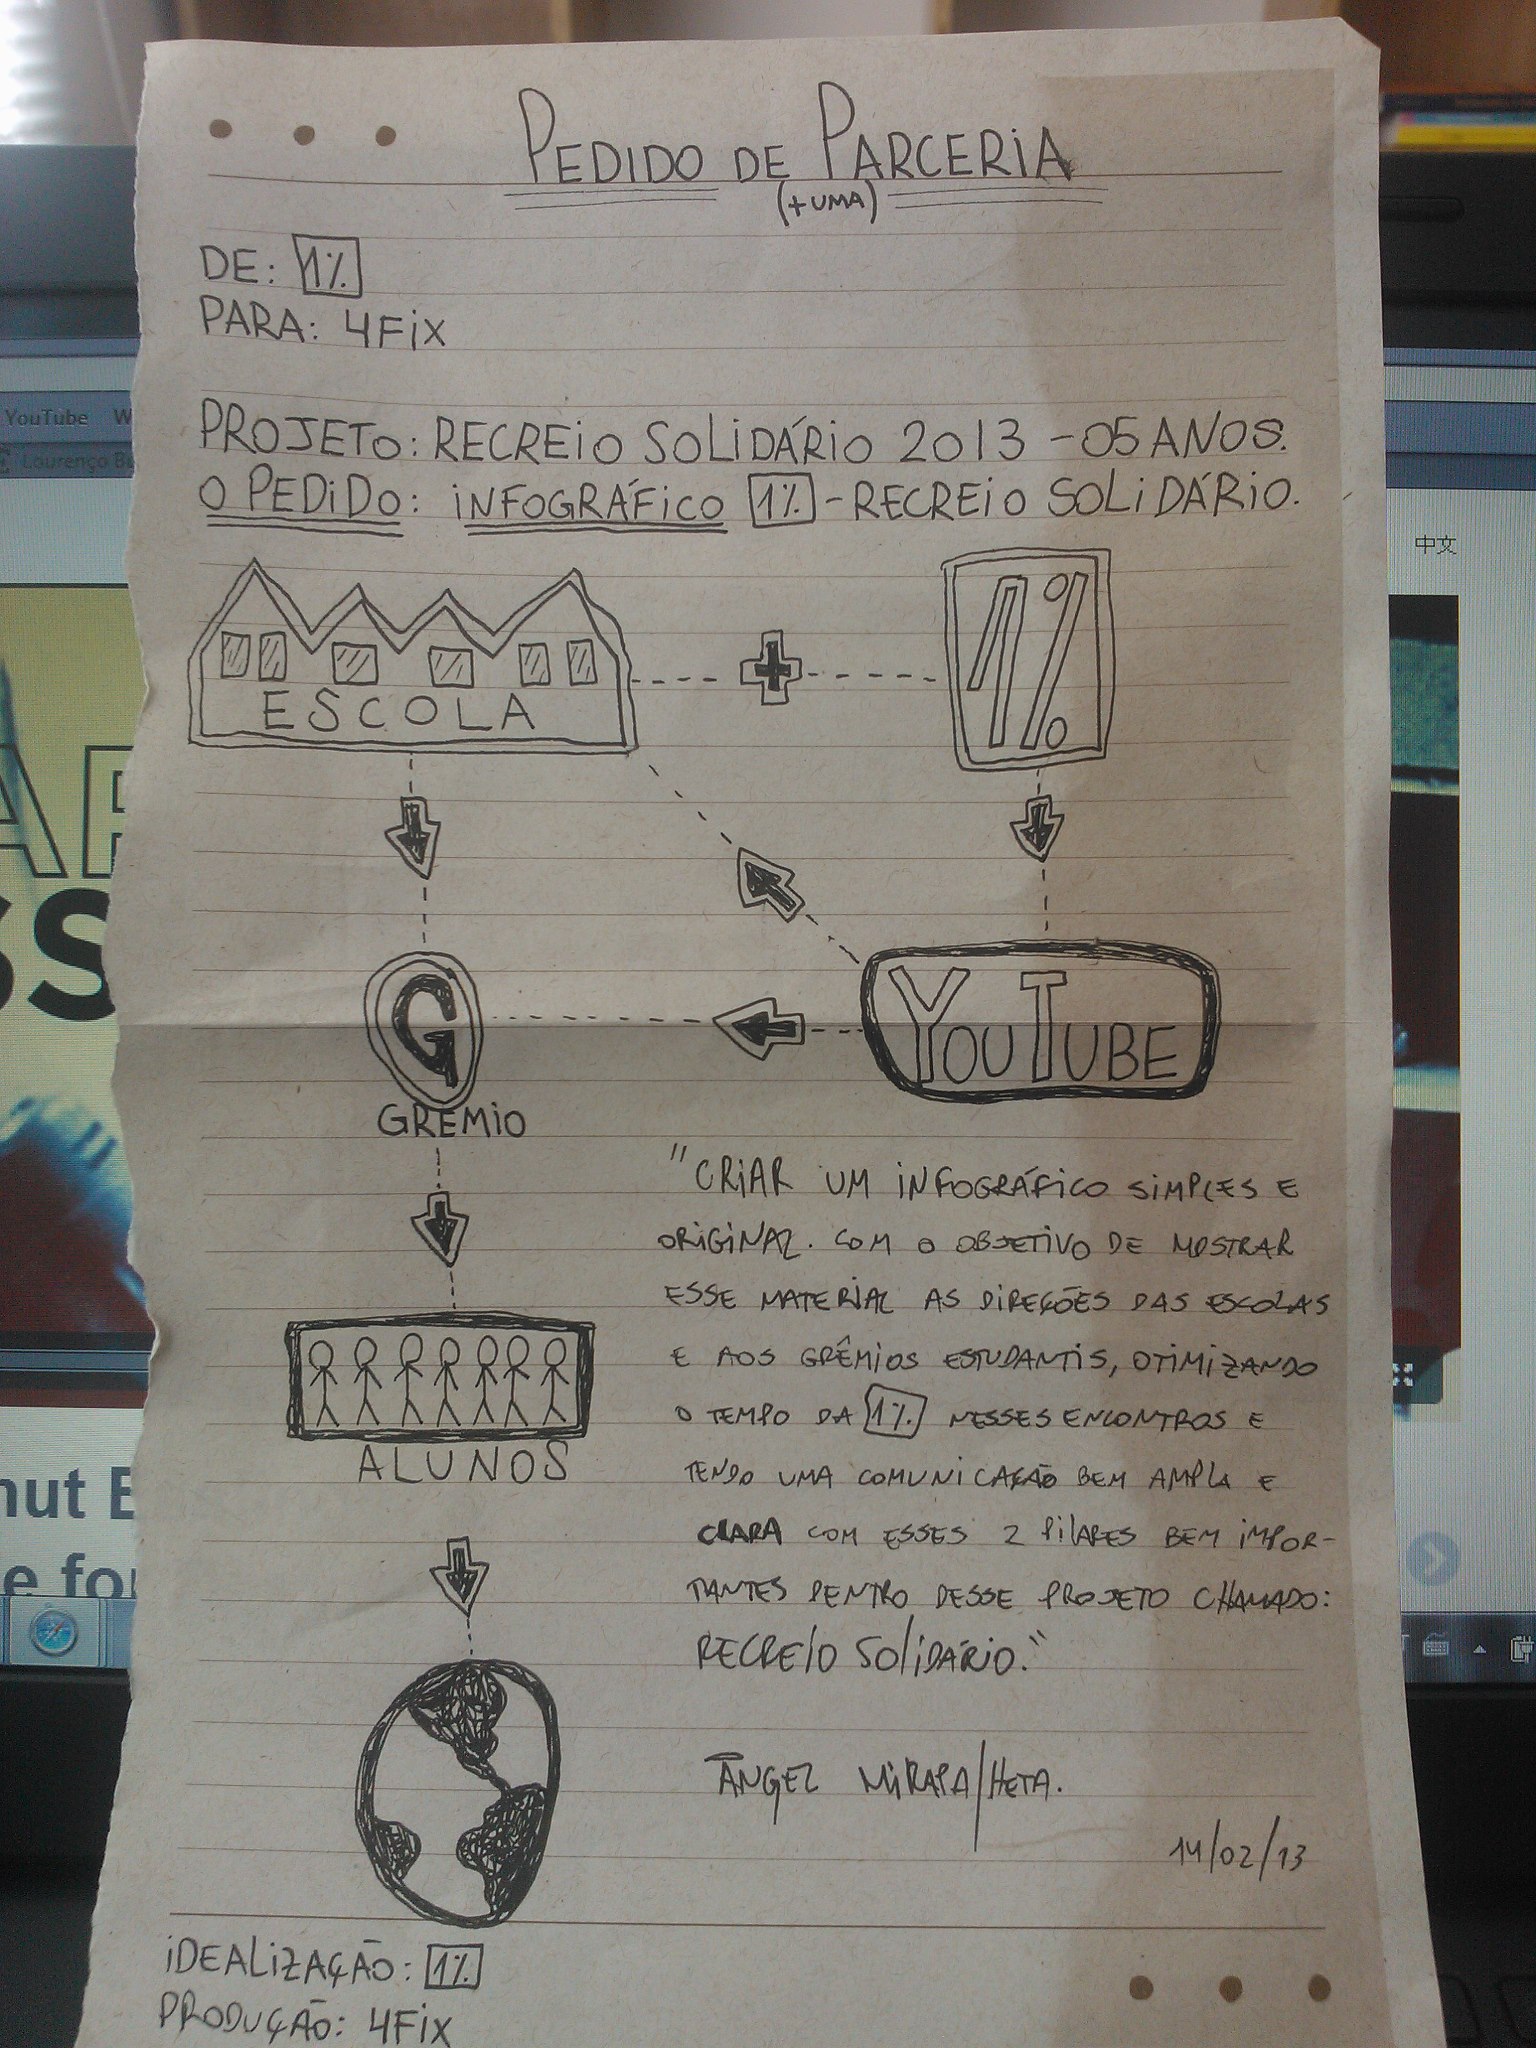 PEDIDO DE PARCERIA
(+UMA)
DE: 1%
PARA: 4FIX
PROJETO: RECREIO SOLIDÁRIO 2013 - 05 ANOS.
O PEDIDO: INFOGRÁFICO 1% - RECREIO SOLIDÁRIO.
ESCOLA
+
1%
G
GREMIO
YOUTUBE
ALUNOS
"CRIAR UM INFOGRÁFICO SIMPLES E
ORIGINAL. COM O OBJETIVO DE MOSTRAR
ESSE MATERIAL AS DIREÇÕES DAS ESCOLAS
E AOS GRÊMIOS ESTUDANTIS, OTIMIZANDO
O TEMPO DA 1% NESSES ENCONTROS E
TENDO UMA COMUNICAÇÃO BEM AMPLA E
CLARA COM ESSES 2 PILARES BEM IMPOR-
TANTES DENTRO DESSE PROJETO CHAMADO:
RECREIO SOLIDÁRIO."
ÂNGEL MIRAPALHETA.
14/02/13
IDEALIZAÇÃO: 1%
PRODUÇÃO: 4FIX
YouTube W
Lourenço Bu
AP
SS
nut E
e for
中文